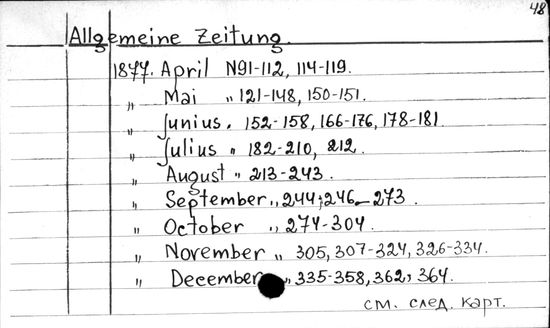 48
Allgemeine Zeitung.
1877. April N91-112, 114-119.
„ Mai „ 121-148, 150-151.
„ Junius. 152-158, 166-176, 178-181
„ Julius „ 182-210, 212.
„ August „ 213-243.
„ September „ 244; 246-273.
„ October „ 274-304.
„ November „ 305, 307-324, 326-334.
„ December „ 335-358, 362, 364.
см. след. карт.